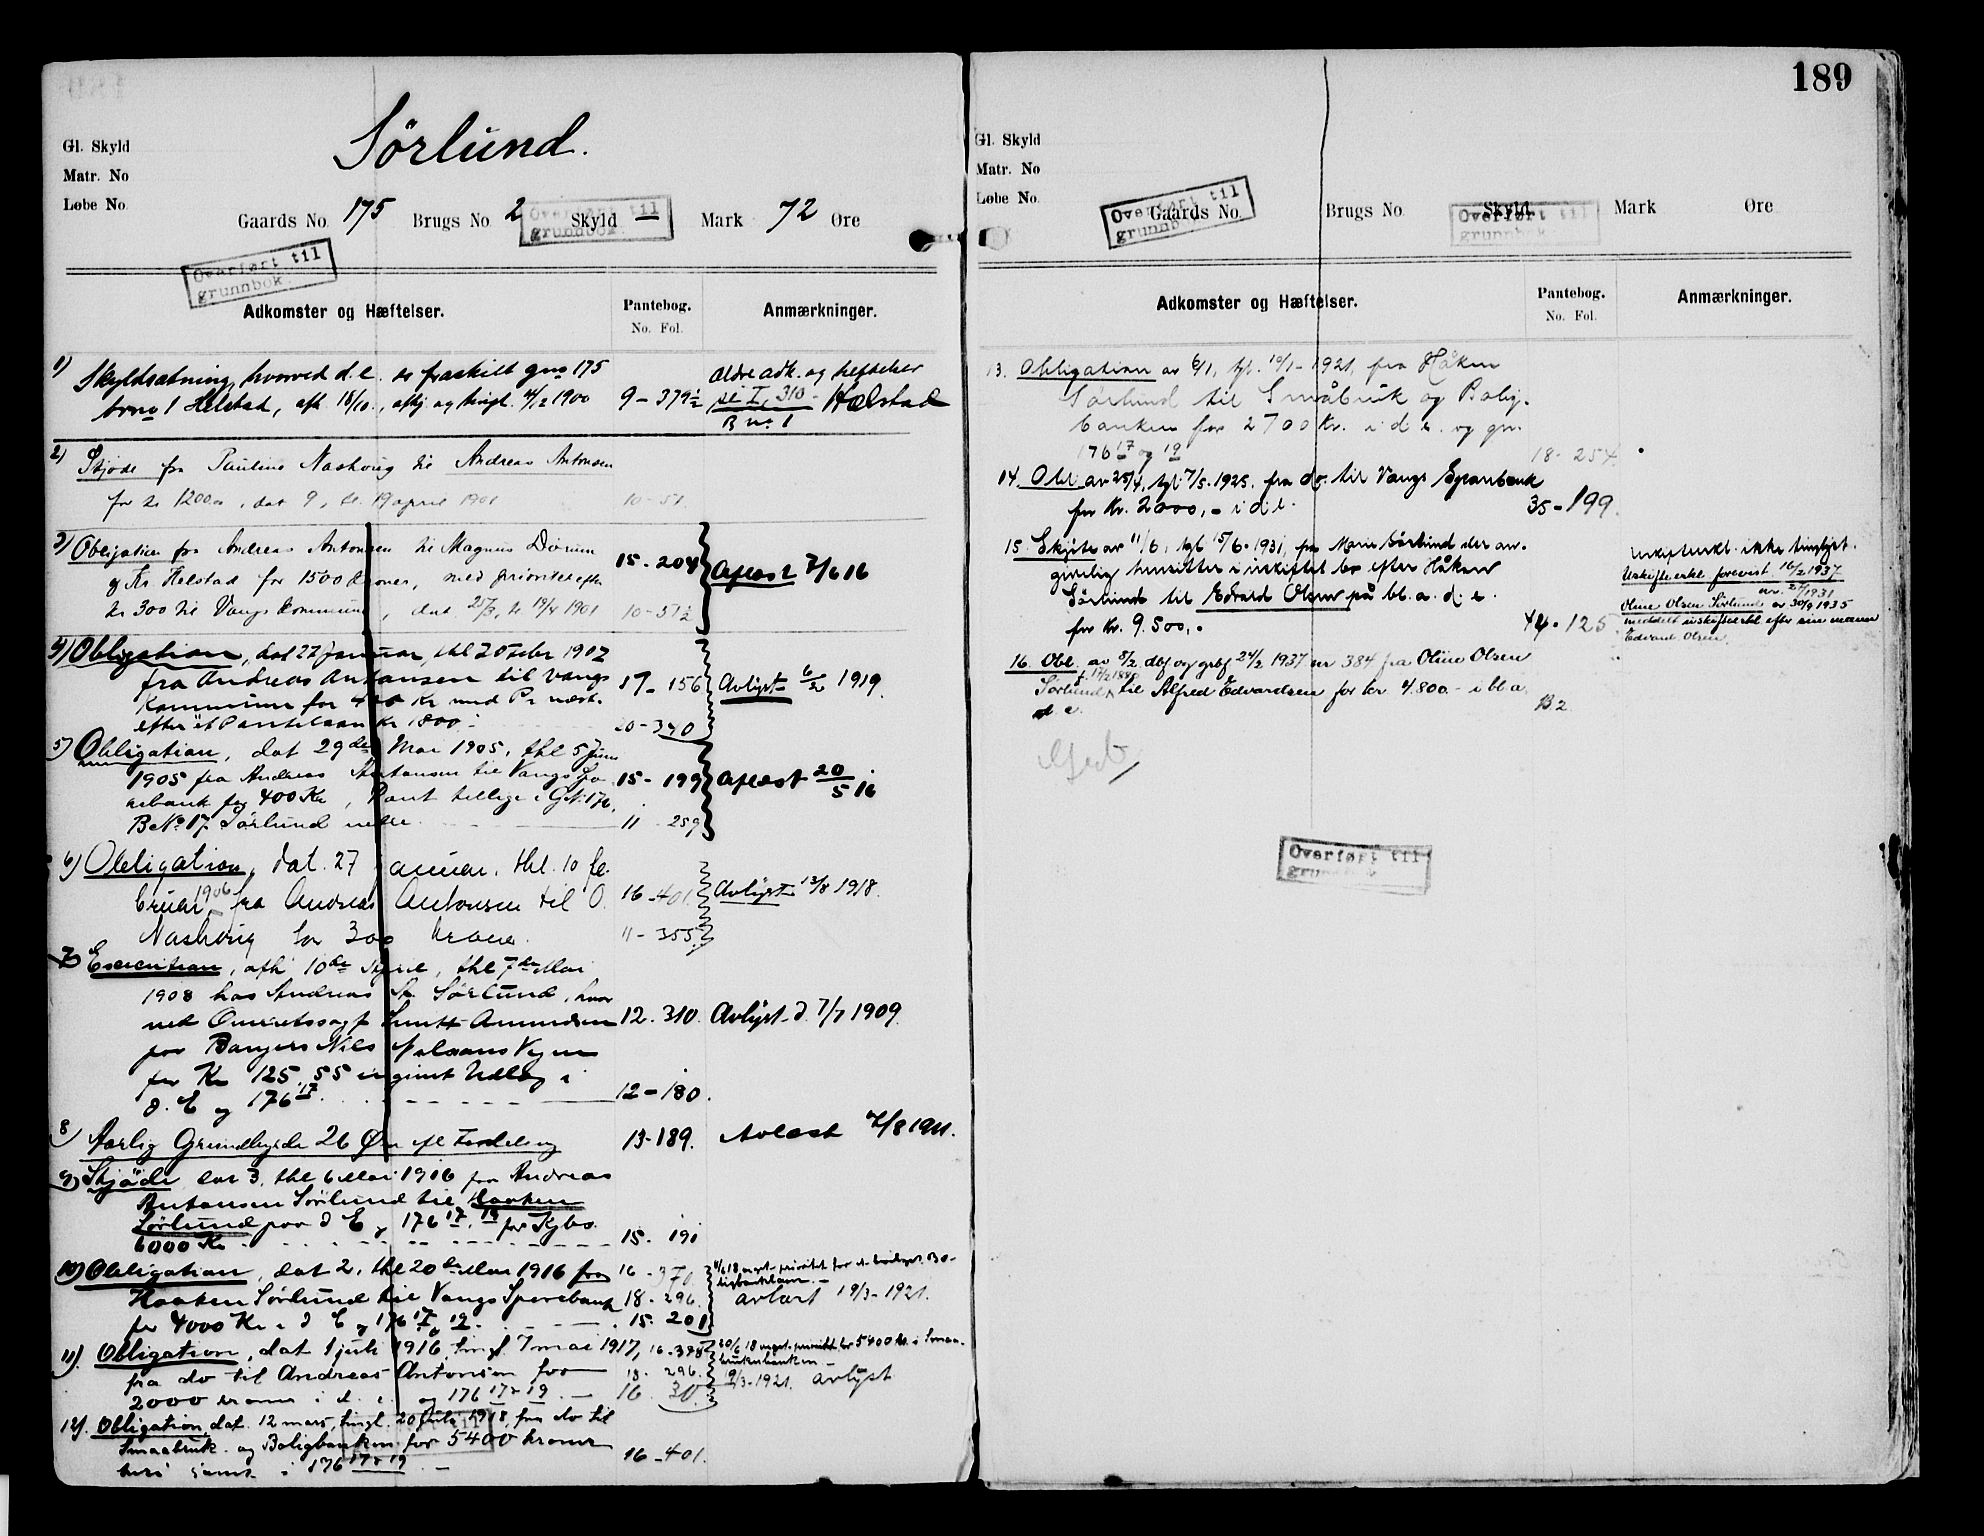 Sörlund.
Gl. Skyld
Matr. No
Løbe No.
Gaards No. 175 Brugs No. 2 Skyld — Mark 72 Øre
Overført til
grunnbok
Overført til
grunnbok
Adkomster og Hæftelser. Pantebog. No. Fol. Anmærkninger.
1) Skyldsætning, hvorved d.e. er fraskilt gno 175
brno 1 Helstad, afh. 18/10, aflj og tingl. 4/2 1900 9 - 379½
ældre adk. og heftelser
se I, 310 - Hælstad
B no. 1
2) Skjøde fra Pauline Nashoug til Andreas Antonsen
for kr 1200, dat 9, tl. 19 april 1901 10-51
3) Obligation fra Andreas Antonsen til Magnus Dörum 15-204
og Kr Helstad for 1500 kroner, med prioritet efter
kr 300 til Vangs kommune, dat 27/3, tl 19/4 1901 10-51½
Aflæst 7/6 16
4) Obligation, dat 27 Januar, thl 20 Febr 1902
fra Andreas Antonsen til Vangs 17-156
Kommune for 400 Kr med Pr næst.
efter et Pantelaan kr 1800 20-340
Avlyst 6/2 1919.
5) Obligation, dat 29de Mai 1905, thl 5 Juni
1905 fra Andreas Antonsen til Vangs Spa 15-199
rebank for 400 Kr, Pant tillige i GN: 176,
BNo 17 Sörlund nedre 11 259
Aflæst 20/5 16
6) Obligation, dat. 27 Januar, thl. 10 fe-
bruar 1906 fra Andreas Antonsen til O. 16-401
Nashoug for 300 kroner. 11-355
Avlyst 13/8 1918.
7) Execution, afh 10de April, thl 7de Mai
1908 hos Andreas A. Sörlund, hvor
ved Overretssagf Smitt Amundsen 12-310
for Bangers Nils Nilsens Vegne
for Kr 125.55 er gjort Udlæg i
d. E og 176 17 12-180.
Avlyst d. 7/7 1909.
8) Aarlig Grundbyrde 26 Øre efl Fordeling 13-189. Avlæst 7/8 1911.
9) Skjøde dat 3, thl 6 Mai 1916 fra Andreas
Antonsen Sörlund til Haaken
Sörlund paa d E og 176 17, 19 for Kjøbs.
6000 Kr 15. 191
10) Obligation, dat 2, thl 20de Mai 1916 fra 16-370
Haaken Sörlund til Vangs Sparebank 18-296
for 4000 Kr i d E og 176 17, 19. 15. 201
avlæst 19/3-1921.
11) Obligation, dat 1 juli 1916, tingl 7 mai 1917, 16-398
fra do til Andreas Antonsen for 18. 296
2000 kroner i d. e. og 176 17 & 19. — 16 30
19/3-1921. avlyst
12) Obligation, dat. 12 mars, tingl. 20 juli 1918, fra do til
Smaabruk- og Boligbanken for 5400 kroner
heri samt i 176 17 & 19 — 16-401.
189
Gl. Skyld
Matr. No
Løbe No.
Gaards No. Brugs No. Skyld Mark Øre
Overført til
grunnbok
Overført til
grunnbok
Adkomster og Hæftelser. Pantebog. No. Fol. Anmærkninger.
13. Obligation av 6/1, tgl. 10/1-1921, fra Håken
Sörlund til Småbruk og Bolig-
banken for 2700 Kr. i d.e. og gn.
176 17 og 19 18-254
14. Obl av 25/4, tgl 7/5-1925. fra do. til Vangs Sparebank
for Kr. 2000,- i d.e. 35-199.
15. Skjöte av 11/6, tgl 15/6-1931, fra Marie Sörlund der an-
givelig hensitter i uskiftet bo efter Håken
Sörlund til Edvald Olsen på bl. a. d. e.
for Kr. 9.500,- 44-125
Uskifteerkl. ikke tinglyst.
Uskifteerkl forevist 16/2 1937
av 27/1931
Oline Olsen Sörlund er 30/9 1935
meddelt uskifteerkl efter sin mann
Edvard Olsen
16. Obl. av 8/2 dbf og grbf 24/2 1937 nr 384 fra Oline Olsen
Sörlund f. 17/2 1889 til Alfred Edvardsen for kr 4.800.- i bl a
d. e. B 2
Overført til
grunnbok